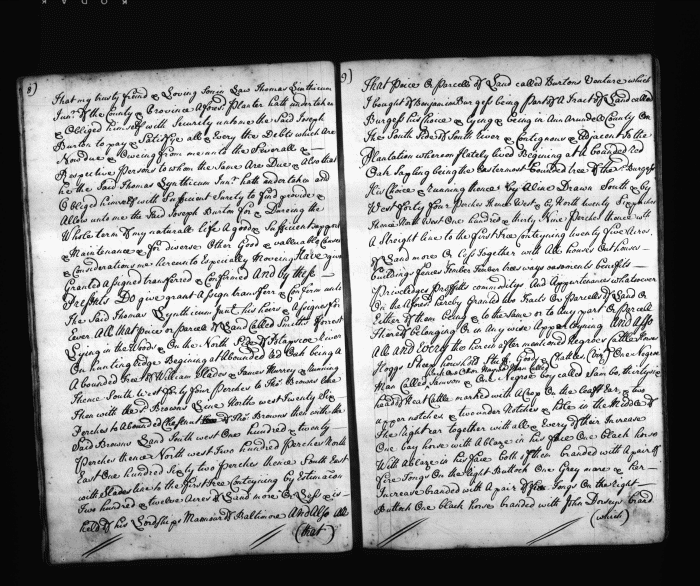 8)
That my trusty friend & Loving Son in Law Thomas Linthicum
Junr of the County & Province Afores. Planter hath undertaken
& Obliged himself with Security unto me the Said Joseph
Burton to pay & Satisfye all & Every the Debts which Are
Now due & Oweing from me unto the Severall
Respective Persons to whom the Same Are Due & Also that
he the Said Thomas Lynthicum Junr hath undertaken and
Obliged himself with Sufficient Surety to find provide &
Allow unto me the Said Joseph Burton for & Dureing the
Whole term of my naturall life A good & Sufficient support
& Maintenance & for diverse Other Good & valuable Causes
& Considerations me hereunto Especially Moveing Have given
Granted assigned transferred & Confirmed And by these
Presents Do give grant assign transferr & Confirm unto
The Said Thomas Lynthicum Junr his heirs & Assignes for
Ever All that piece or parcell of Land Called Smiths forrest
Lying in the Woods & On the North Side of Patapsco River
On hunting ridge Begining at a bounded red Oak being a
A bounded tree of William Slades & James Murrey & running
Thence South West forty four Perches to Thos Browns line
Then with the sd Browns Line North west twenty Six
Perches to A bound of Chestnut of Thos Browns then with the
Said Browns Land South west One hundred & twenty
Perches thence North west Two hundred Perches North
East One hundred Sixty two Perches thence South East
with Slades line to the first tree Containing by Estimacon
Two hundred & twelve Acres of Land more Or Less & is
held of his Lordships Mannour of Baltimore And Also All
(that)
9)
That Peice Or Parcell of Land called Burtons Venture which
I bought of Benjamin Burgess being Part of A Tract of Land called
Burgess his Choice & Lying & being in Ann Arundell County On
The South Side of South River & Contiguous & Adjacent to the
Plantation whereon I lately lived Begining at A bounded red
Oak Sapling being the Easternmost bounded tree of the sd Burgess
His Choice & running thence by A line Drawn South & by
West forty four Perches thence West & by North twenty Six perches
thence North West One hundred & thirty Nine Perches thence with
A Straight line to the first tree Containing twenty five Acres
of Land more Or Less Together with All houses Outhouses
Buildings fences timber timber trees ways easments benefits
Priviledges Proffitts commodities And Appurtenances whatsoever
To the Afores. hereby Granted two Tracts Or Parcells of Land Or
Either of them being to the Same or to Any part Or Parcell
Thereof belonging Or in Any wise Appertaining And Also
All and Every the herein after mentioned Negroes Cattle horses
Hoggs Sheep household Stuff Goods & Chattles (Viz) One Negroe
Man Called Samson & One Negroe boy called Sambo, thirty six
head of Neat Cattle marked with A Crop On the left Ear & two
upper notches & two under Notches & hole in the Middle of
The Right ear together with all & Every of their Increase
One bay horse with A blaze in his face One black horse
With A blaze in his face both of them branded with A pair of
Fire Tongs On the Right Buttock One Grey mare & her
Increase branded with A pair of fire Tongs On the Right
Buttock One black horse branded with John Dorseys brand
(which)